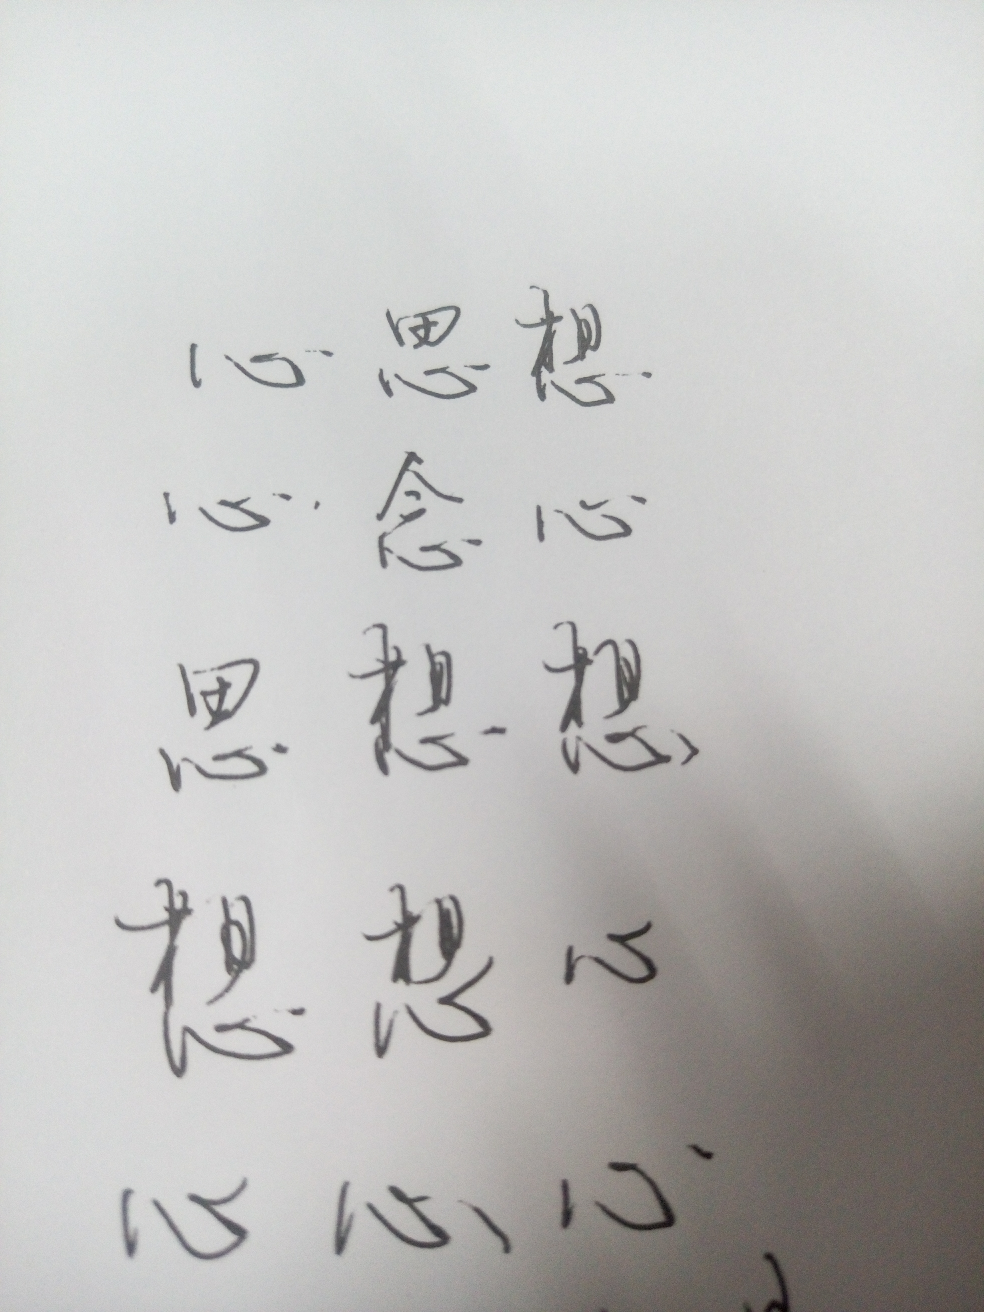 心思想
心念心
思想想
想想心
心心心